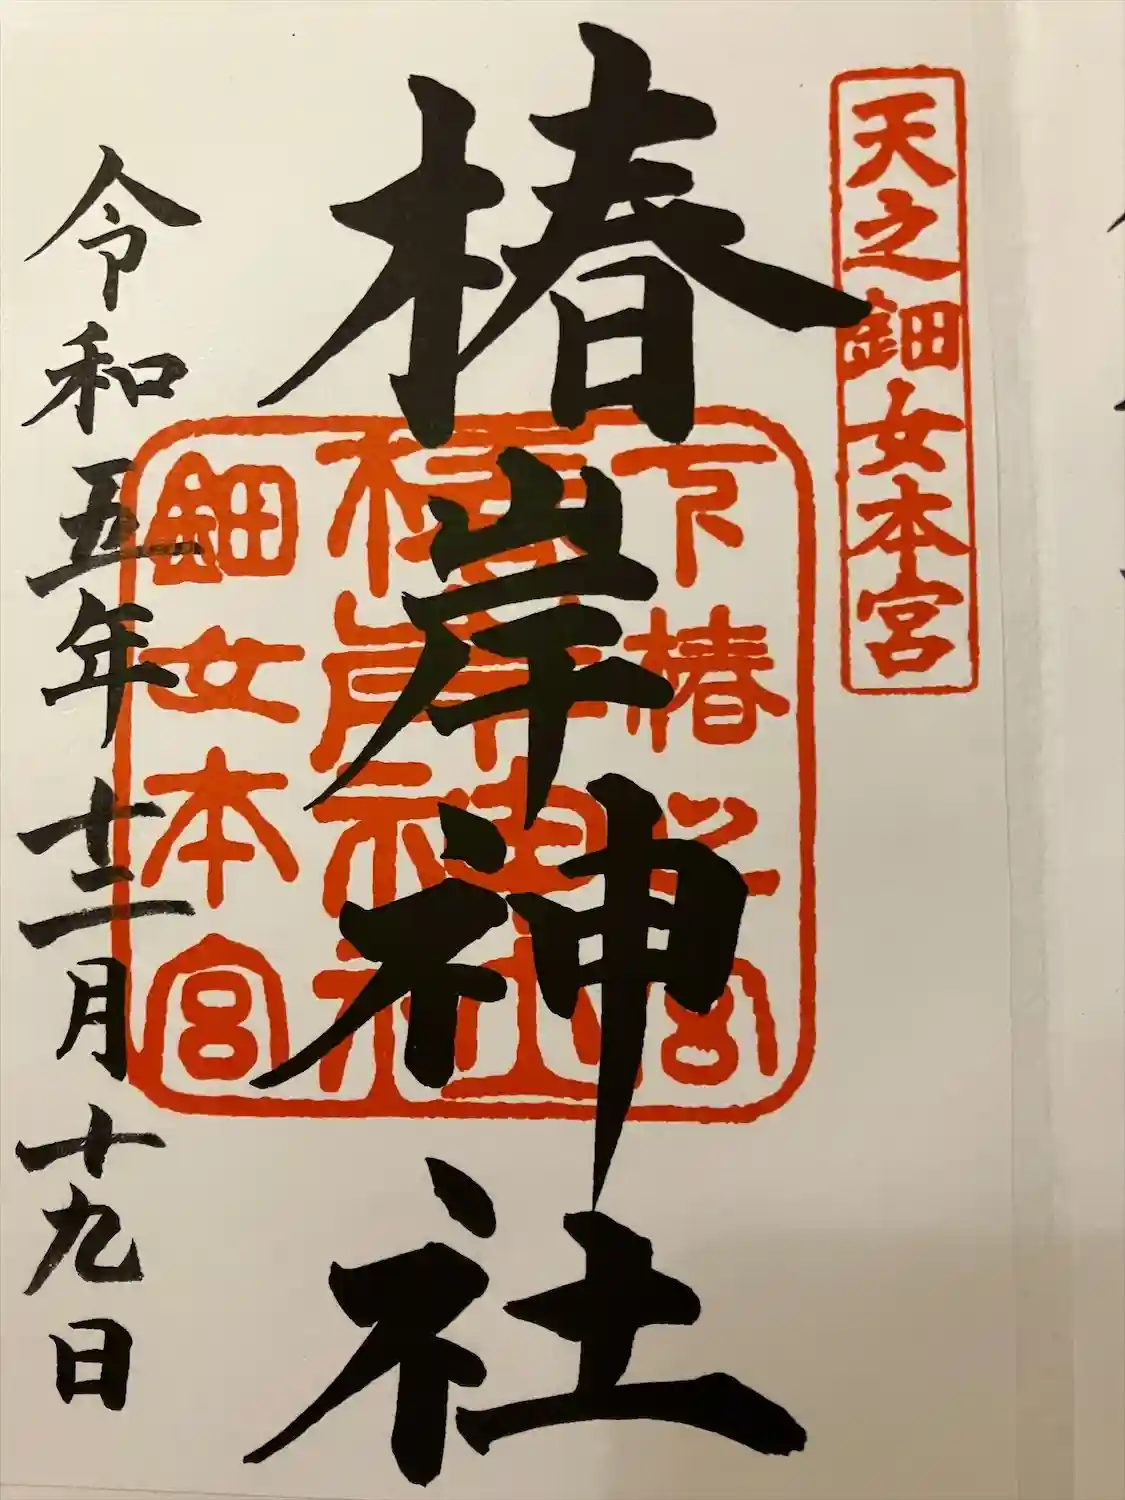 天之鈿女本宮
椿岸神社
下椿之宮
椿岸神社
鈿女本宮
令和五年十二月十九日